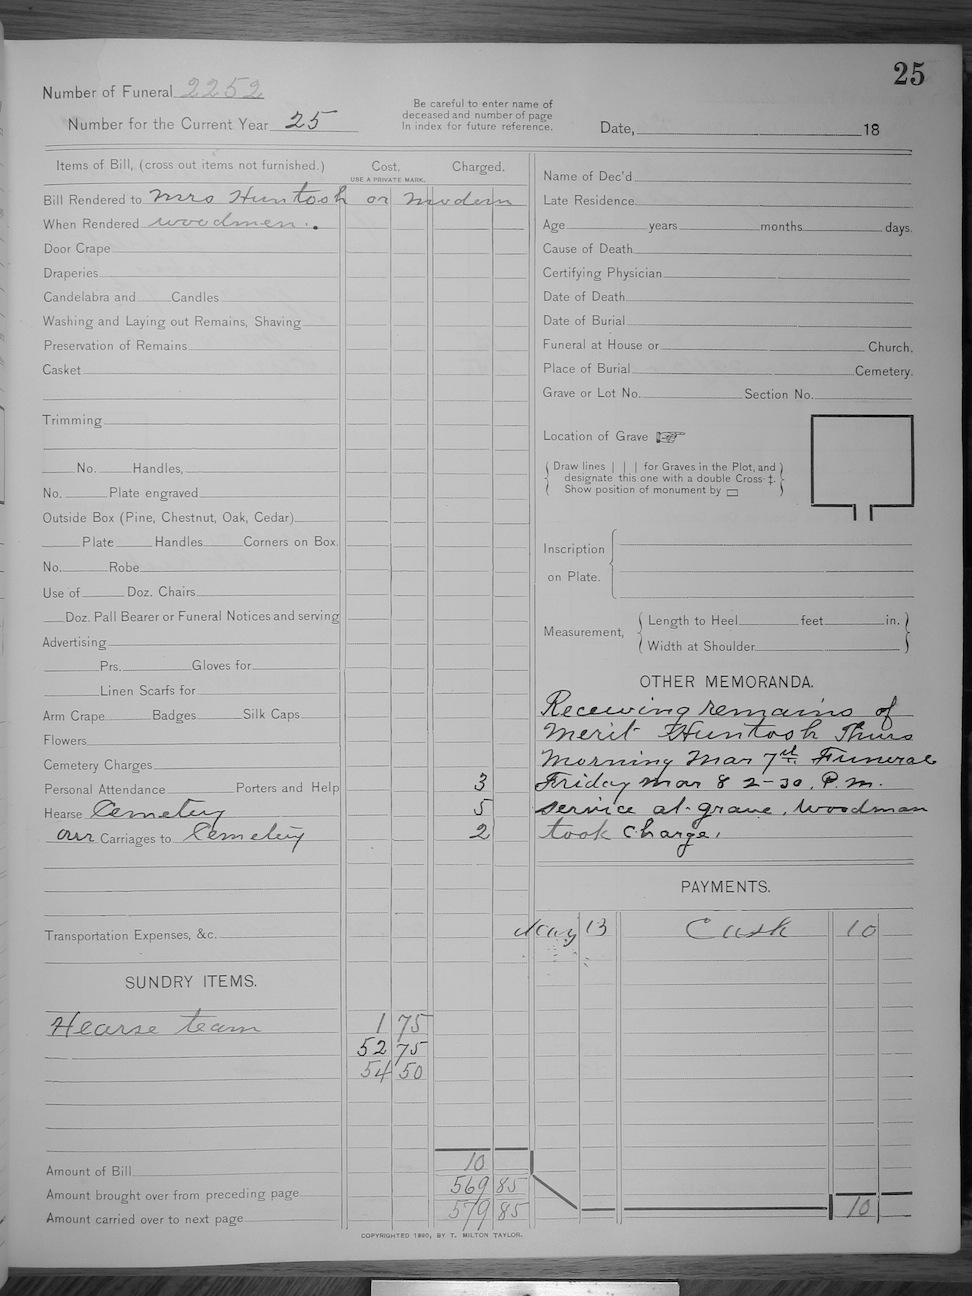 25
Number of Funeral 2252
Number for the Current Year 25
Be careful to enter name of
deceased and number of page
In index for future reference.
Date, 18
Items of Bill, (cross out items not furnished.) Cost. Charged.
USE A PRIVATE MARK.
Bill Rendered to Mrs Huntosh or Modern
When Rendered woodmen.
Door Crape
Draperies
Candelabra and Candles
Washing and Laying out Remains, Shaving
Preservation of Remains
Casket
Trimming
No. Handles,
No. Plate engraved
Outside Box (Pine, Chestnut, Oak, Cedar)
Plate Handles Corners on Box.
No. Robe
Use of Doz. Chairs
Doz. Pall Bearer or Funeral Notices and serving
Advertising
Prs. Gloves for
Linen Scarfs for
Arm Crape Badges Silk Caps
Flowers
Cemetery Charges
Personal Attendance Porters and Help 3
Hearse Cemetery 5
our Carriages to Cemetery 2
Transportation Expenses, &c.
SUNDRY ITEMS.
Hearse team 1 75
52 75
54 50
Amount of Bill 10
Amount brought over from preceding page 569 85
Amount carried over to next page 579 85
Name of Dec'd
Late Residence
Age years months days.
Cause of Death
Certifying Physician
Date of Death
Date of Burial
Funeral at House or Church.
Place of Burial Cemetery.
Grave or Lot No. Section No.
Location of Grave
Draw lines | | | for Graves in the Plot, and
designate this one with a double Cross ‡.
Show position of monument by
Inscription
on Plate.
Measurement, Length to Heel feet in.
Width at Shoulder
OTHER MEMORANDA.
Receiving remains of
Merit Huntosh Thurs
Morning Mar 7th. Funeral
Friday Mar 8 2-30, P.M.
service at grave, Woodman
took charge.
PAYMENTS.
May 13 Cash 10
10
COPYRIGHTED 1890, BY T. MILTON TAYLOR.